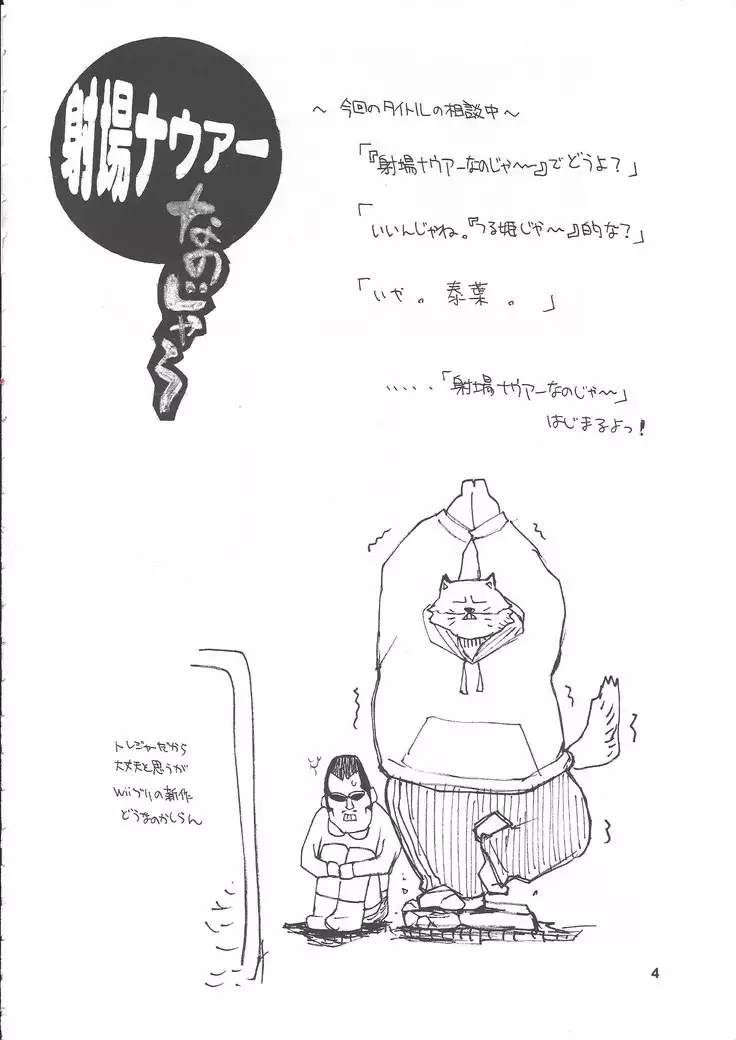 射場ナウアー
なのじゃ〜
～ 今回のタイトルの相談中 ～
「『射場ナウアーなのじゃ〜』でどうよ？」
「いいんじゃね。『つる姫じゃ〜』的な？」
「いや。泰葉。」
、、、、、「射場ナウアーなのじゃ〜」
はじまるよっ！
トレジャーだから
大丈夫と思うが
Wiiグリの新作
どうなのかしらん
4